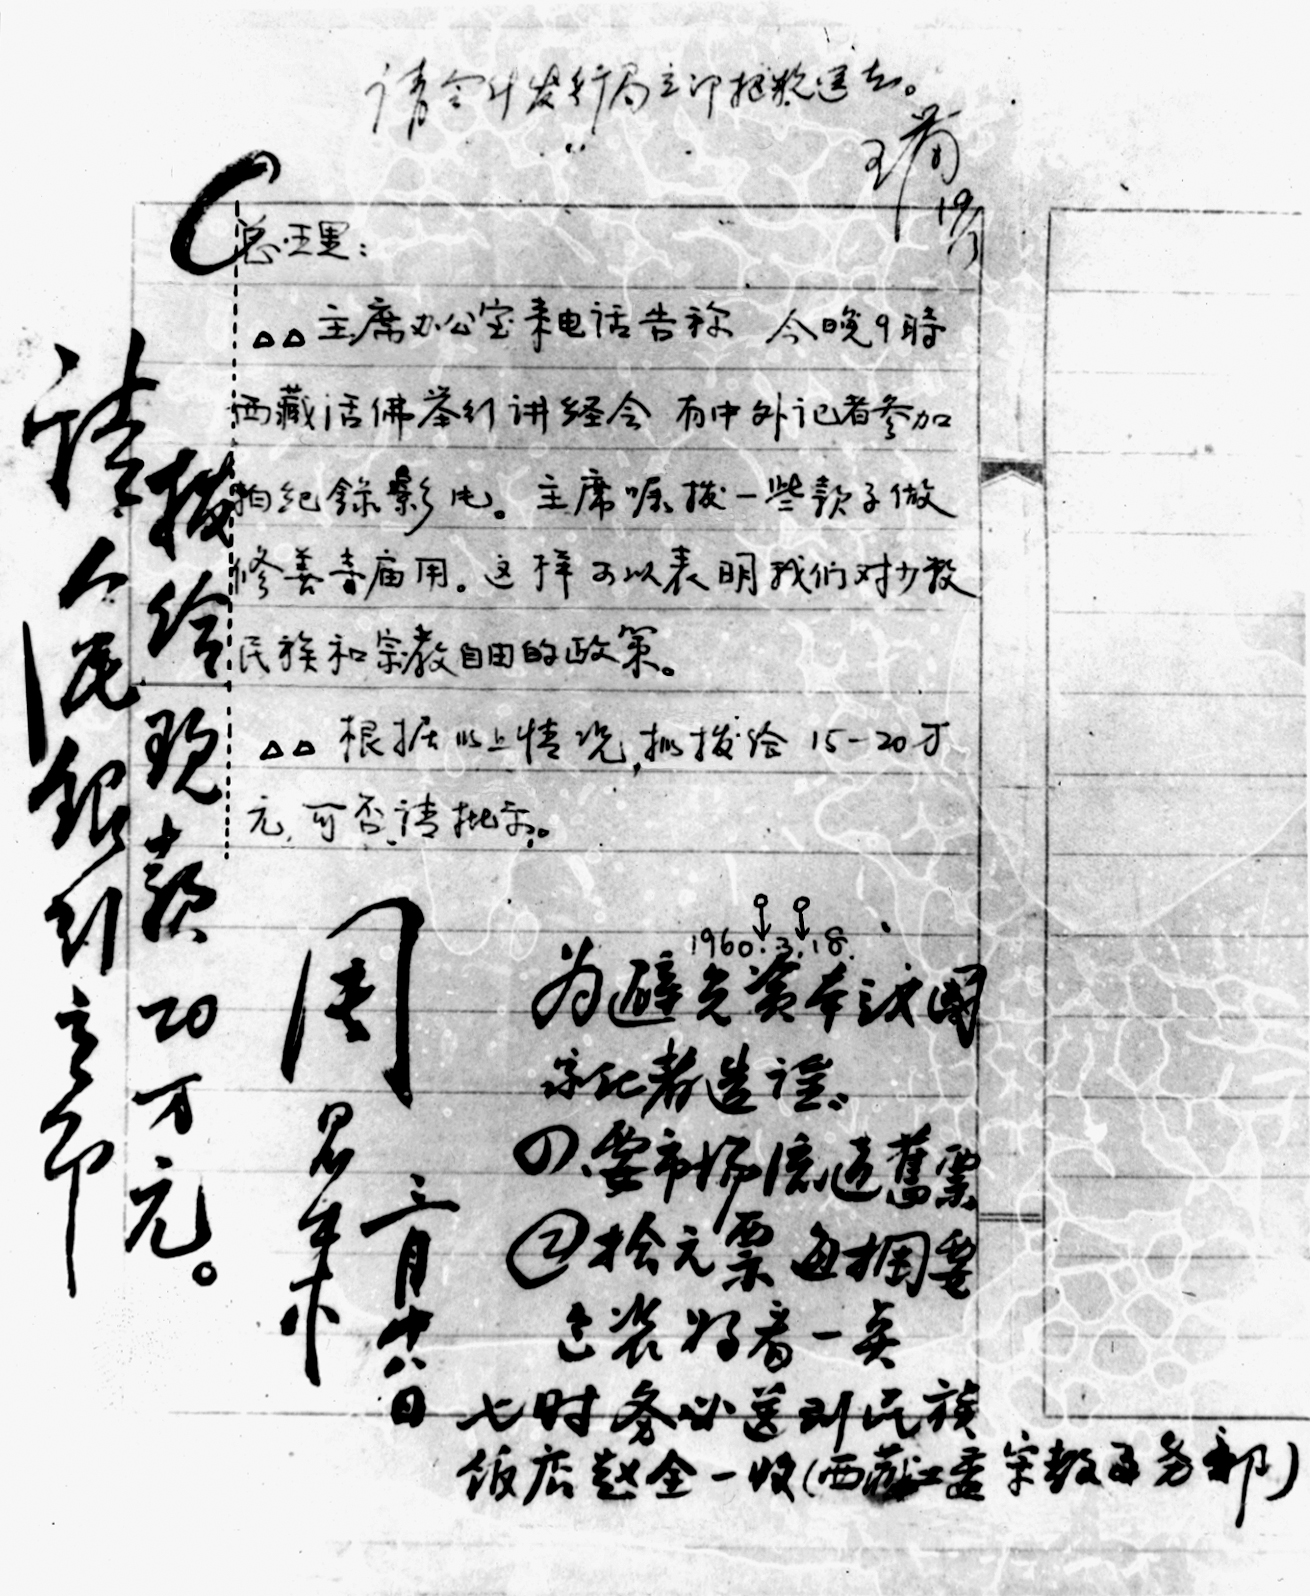 请会计发行局立即把款送去。
王
总理:
△△主席办公室来电话告称 今晚9时
西藏活佛举行讲经会 有中外记者参加
拍纪錄影片。主席嘱拨一些款子做
修善寺庙用。这样可以表明我们对少数
民族和宗教自由的政策。
△△根据以上情况,拟拨给15-20万
元,可否,请批示。
1960.3.18.
请人民銀行立即
拨给现款20万元。
周恩来
三月十八日
为避免资本主义国
家记者造谣:
①、要市场流通舊票
②拾元票每捆要
包装好看一点
七时务必送到民族
饭店赵全一收(西藏工委宗教事务部)